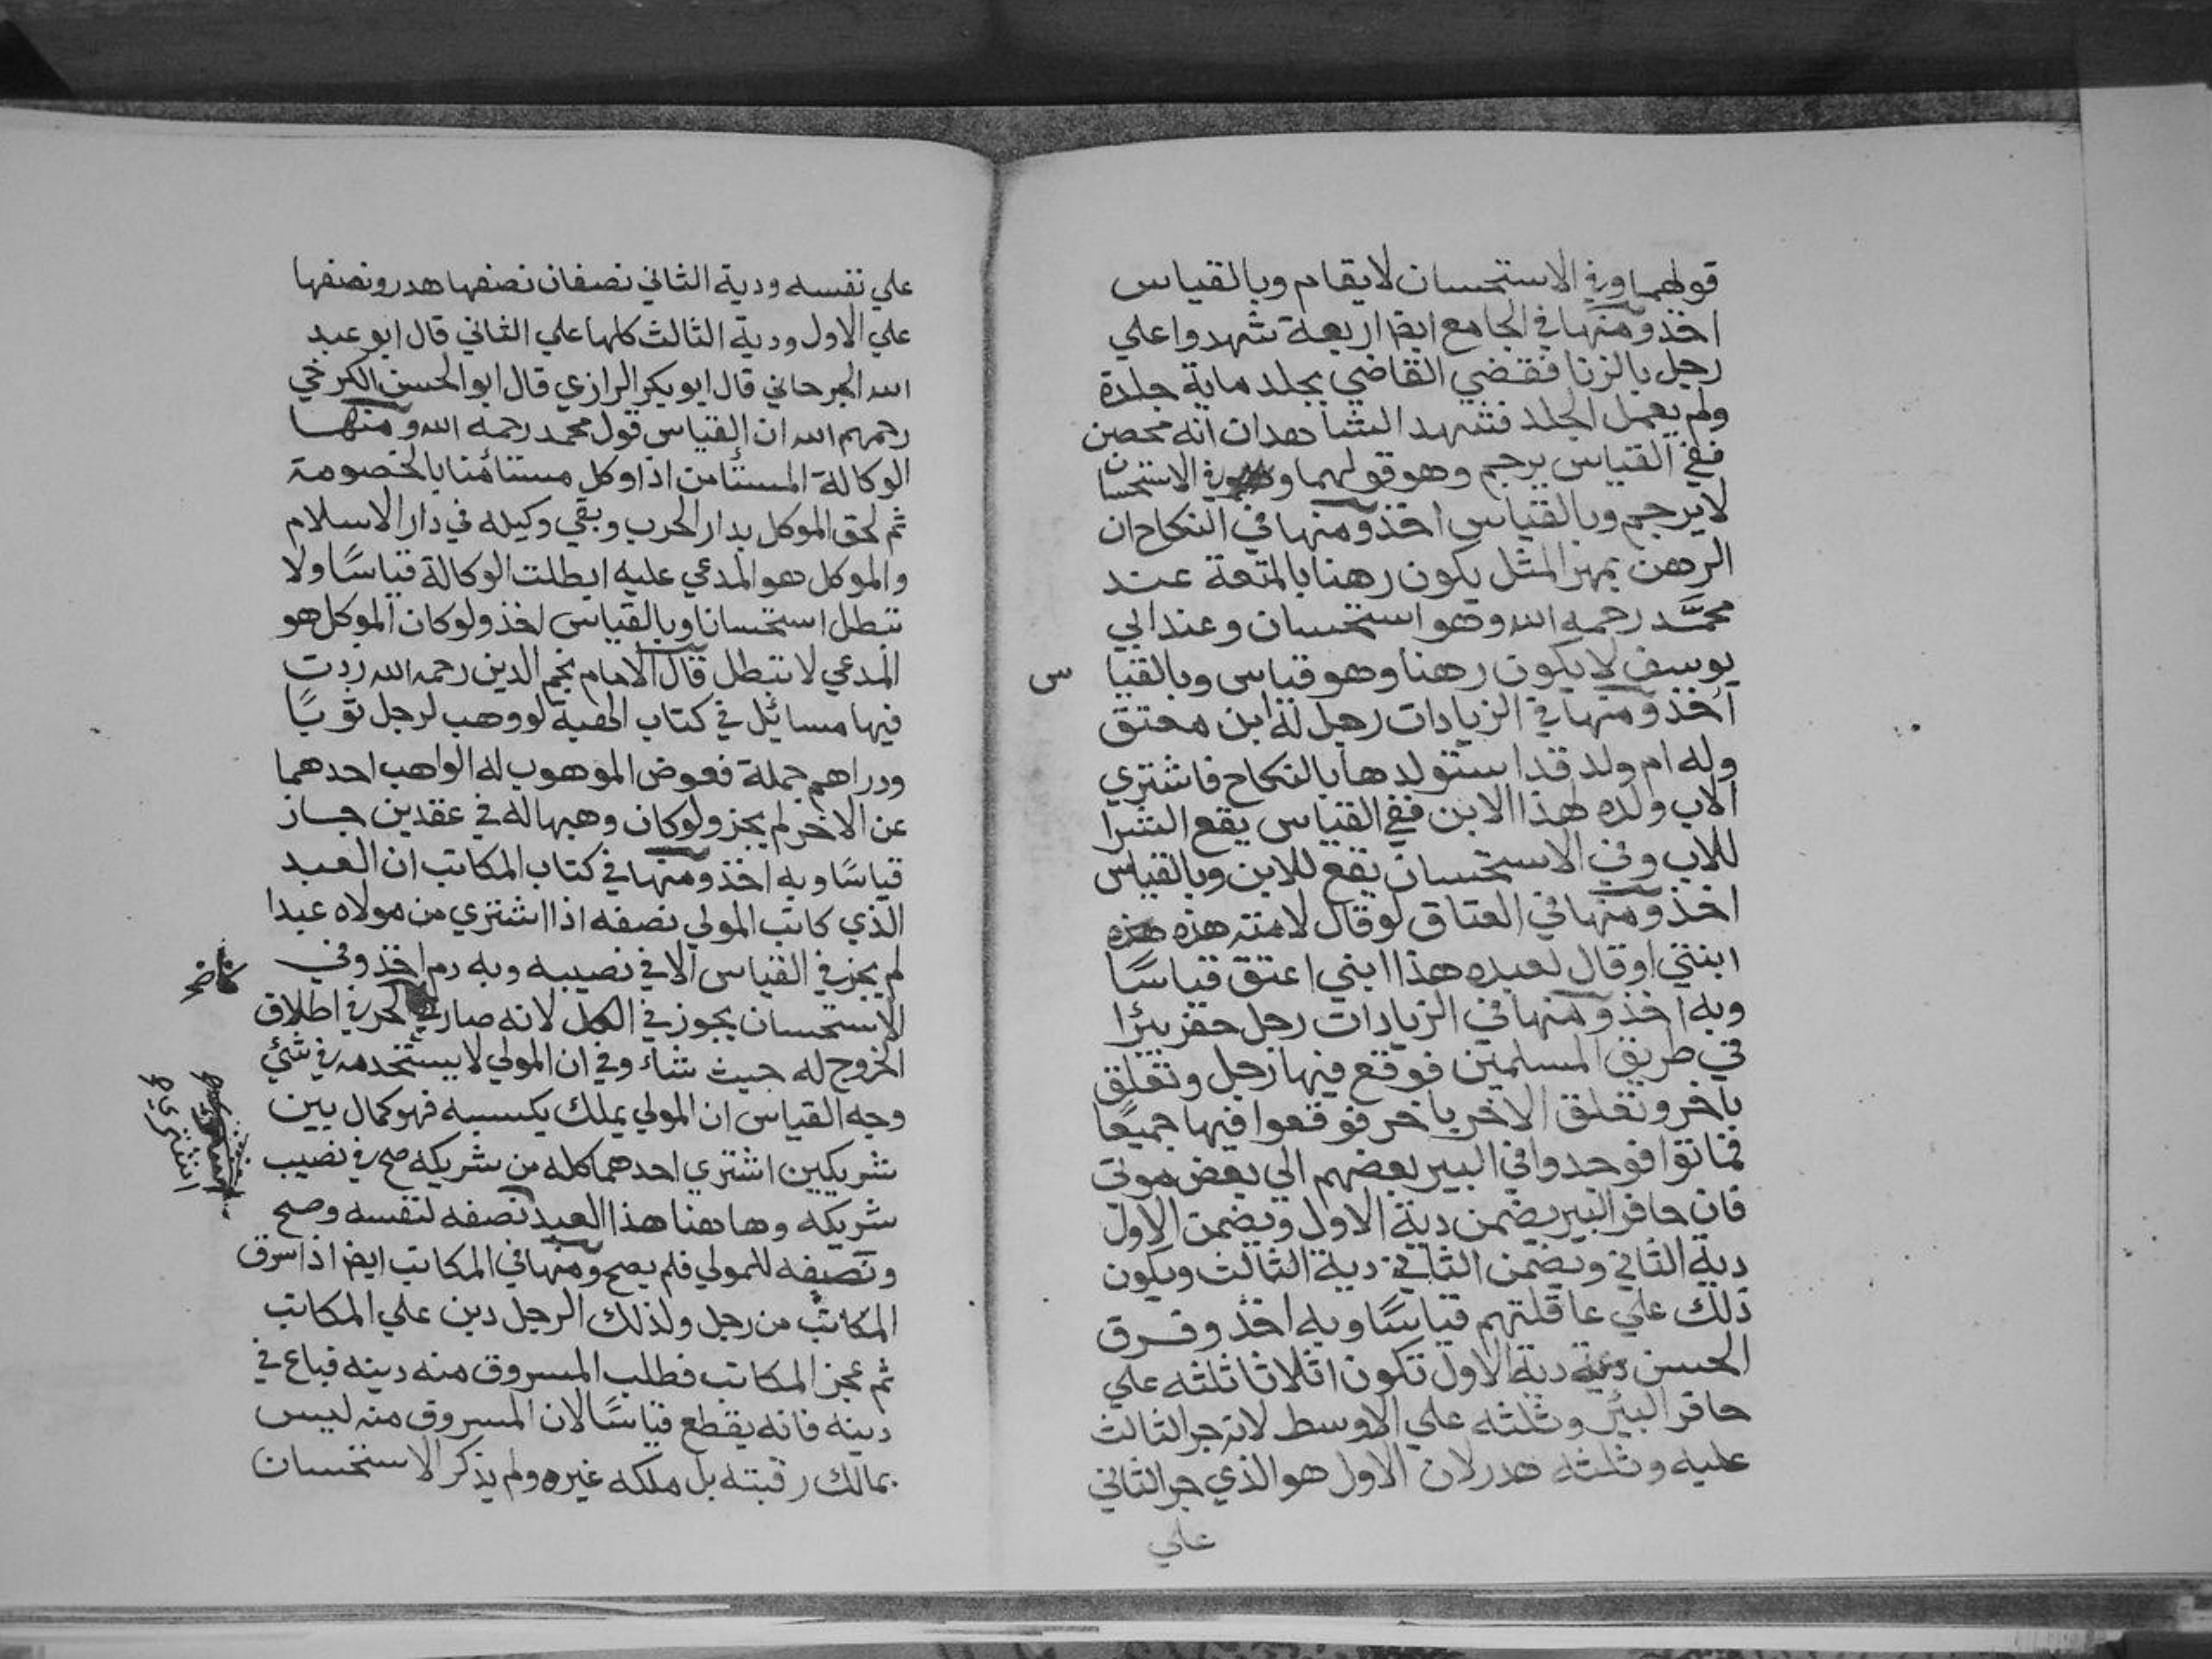 قولهما وفي الاستحسان لا يقام وبالقياس
اخذ ومنها في الجامع ايضا اربعة شهدوا علي
رجل بالزنا فقضي القاضي بجلد ماية جلدة
ولم يعمل الجلد فشهد الشاهدان انه محصن
ففي القياس يرجم وهو قولهما وفي الاستحسان
لا يرجم وبالقياس اخذ ومنها في النكاح ان
الرهن بمهر المثل يكون رهنا بالمتعة عند
محمد رحمه الله وهو استحسان وعند ابي
يوسف لا يكون رهنا وهو قياس وبالقياس
اخذ ومنها في الزيادات رجل له ابن معتق
وله ام ولد قد استولدها بالنكاح فاشتري
الاب ولده هذا الابن ففي القياس يقع الشرا
للاب وفي الاستحسان يقع للابن وبالقياس
اخذ ومنها في العتاق لو قال لامته هذه
ابنتي او قال لعبده هذا ابني اعتق قياسًا
وبه اخذ ومنها في الزيادات رجل حفر بئرا
في طريق المسلمين فوقع فيها رجل وتعلق
باخر وتعلق الاخر باخر فوقعوا فيها جميعًا
فماتوا فوجدوا في البير بعضهم الي بعض موتي
فان حافر البير يضمن دية الاول ويضمن الاول
دية الثاني ويضمن الثاني دية الثالث ويكون
ذلك علي عاقلتهم قياسًا وبه اخذ وفرق
الحسن دية الاول تكون اثلاثا ثلثه علي
حافر البئر وثلثه علي الاوسط لانه جر الثالث
عليه وثلثه هدر لان الاول هو الذي جر الثاني
علي
علي نفسه ودية الثاني نصفان نصفها هدر ونصفها
علي الاول ودية الثالث كلها علي الثاني قال ابو عبد
الله الجرجاني قال ابو بكر الرازي قال ابو الحسن الكرخي
رحمهم الله ان القياس قول محمد رحمه الله ومنها
الوكالة المستأمن اذا وكل مستأمنا بالخصومة
ثم لحق الموكل بدار الحرب وبقي وكيله في دار الاسلام
والموكل هو المدعي عليه ابطلت الوكالة قياسًا ولا
تبطل استحسانا وبالقياس اخذ ولو كان الموكل هو
المدعي لا تبطل قال الامام نجم الدين رحمه الله زدت
فيها مسائل في كتاب الهبة لو وهب لرجل ثوبًا
ودراهم جملة فعوض الموهوب له الواهب احدهما
عن الاخر لم يجز ولو كان وهبها له في عقدين جاز
قياسًا وبه اخذ ومنها في كتاب المكاتب ان العبد
الذي كاتب المولي نصفه اذا اشتري من مولاه عبدا
لم يجز في القياس الا في نصيبه وبه اخذ وفي
الاستحسان يجوز في الكل لانه صار كالحر في اطلاق
الخروج له حيث شاء وفي ان المولي لا يستخدمه في شئي
وجه القياس ان المولي يملك بكسبه فهو كمال بين
شريكين اشتري احدهما كله من شريكه صح في نصيب
شريكه وها هنا هذا العبد نصفه لنفسه وصح
ونصفه للمولي فلم يصح ومنها في المكاتب ايضا اذا سرق
المكاتب من رجل ولذلك الرجل دين علي المكاتب
ثم عجز المكاتب فطلب المسروق منه دينه فباع في
دينه فانه يقطع قياسًا لان المسروق منه ليس
بمالك رقبته بل ملكه غيره ولم يذكر الاستحسان